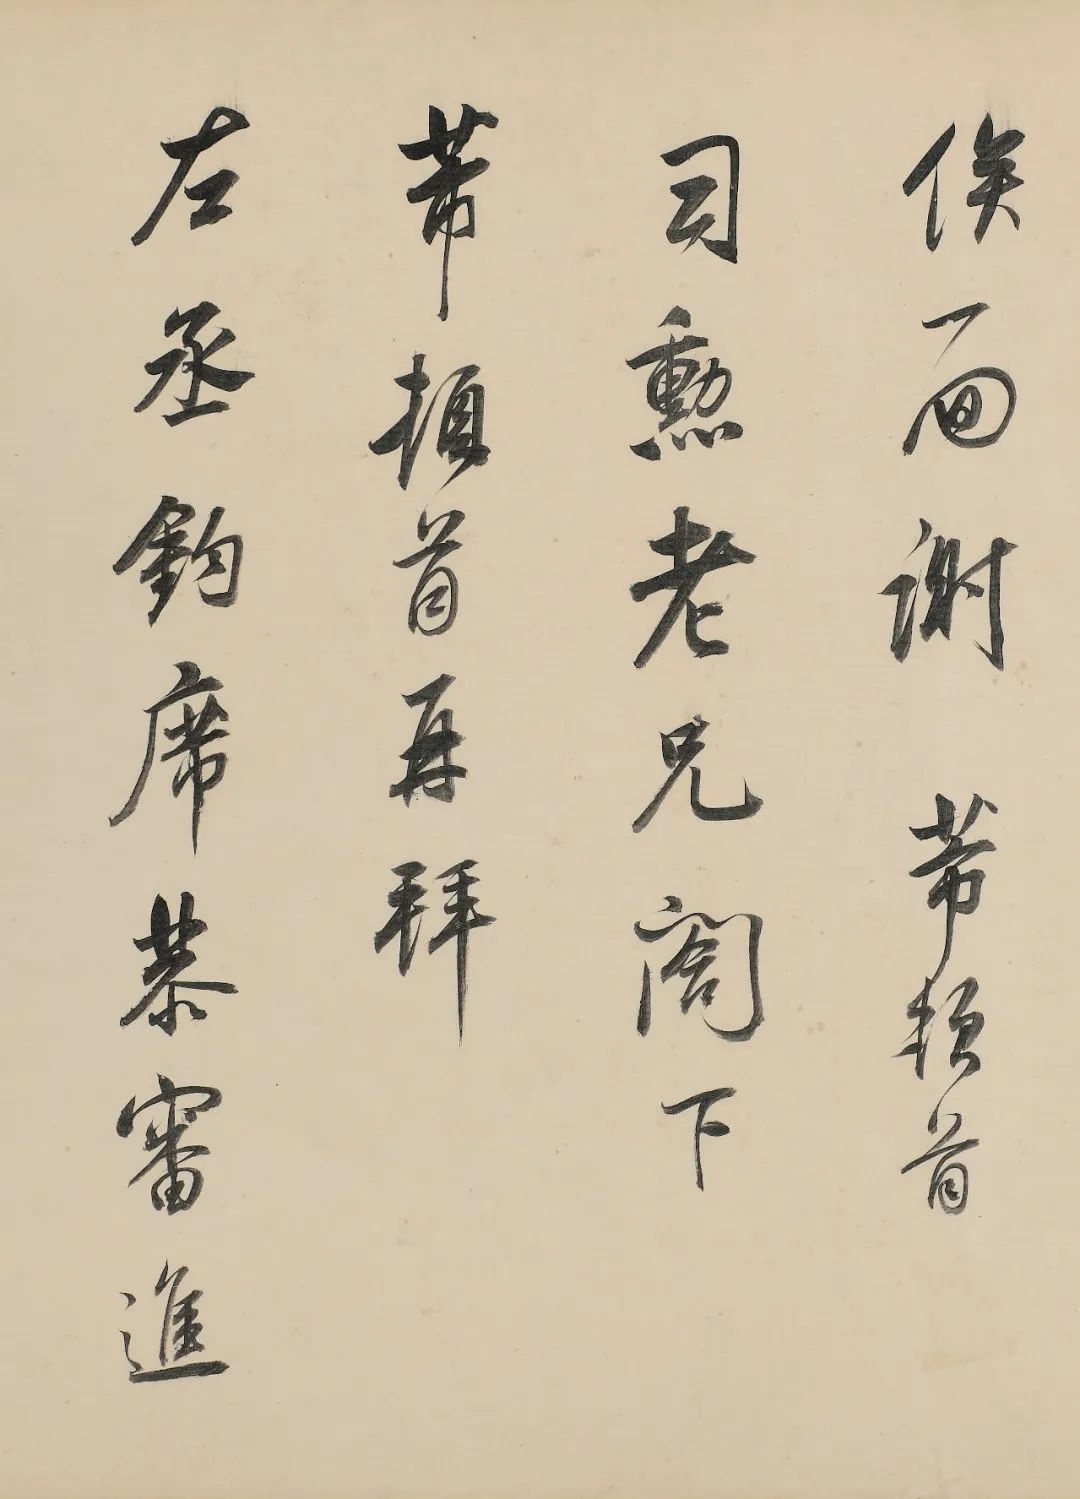 俟面谢 芾頓首
司勲老兄閤下
芾頓首再拜
左丞鈞席恭審進